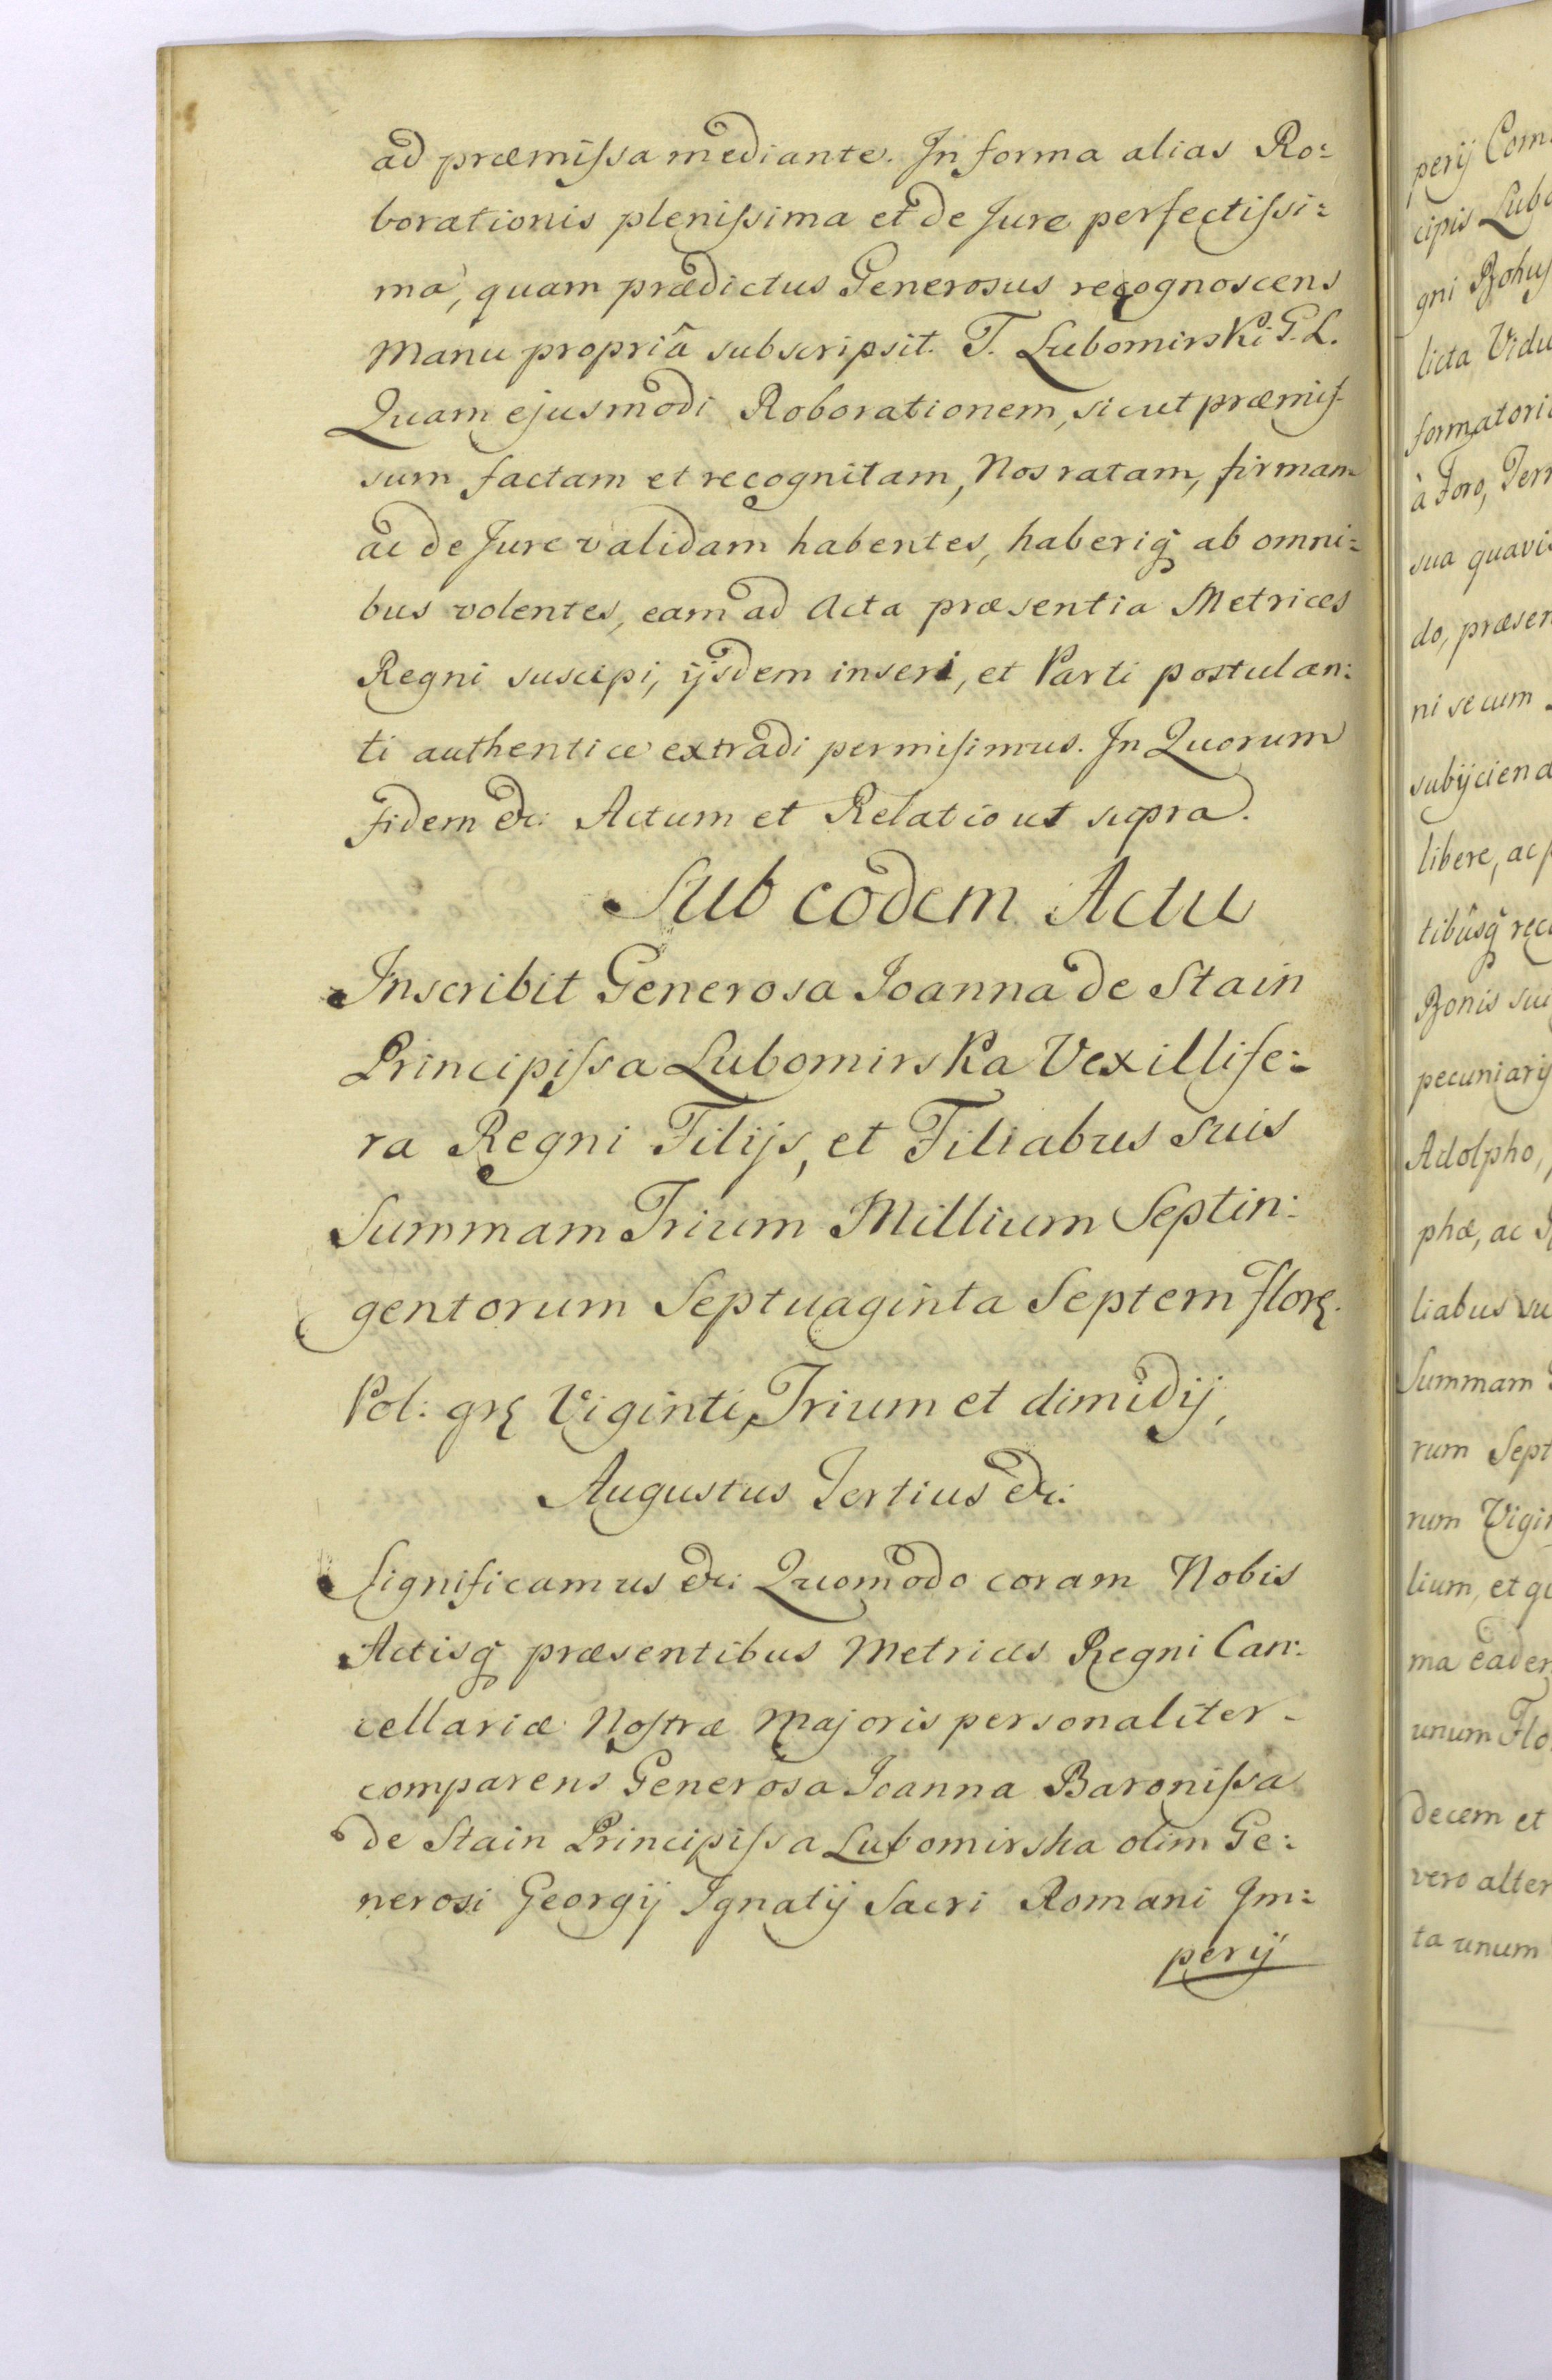 ad præmiſsa mediante. In forma alias Ro:
borationis pleniſsima et de Jure perfectiſsi:
ma, quam prædictus Generosus recognoscens
Manu propriâ subscripsit. T. Lubomirski G. L.
Quam ejusmodi Roborationem, sicut præmiſ
sum factam et recognitam, Nos ratam, firmam
ac de Jure validam habentes, haberiq₃ ab omni:
bus volentes, eam ad Acta præsentia Metrices
Regni suscipi, ijsdem inseri, et Parti postulan:
ti authentice extradi permisimus. In Quorum
fidem &c: Actum et Relatio ut supra.
Sub eodem Actu
Inscribit Generosa Joanna de Stain
Principiſsa Lubomirska Vexillife:
ra Regni Filijs, et Filiabus suis
Summam Trium Millium Septin:
gentorum Septuaginta Septem flor.
Pol: gr Viginti, Trium et dimidij,
Augustus Tertius &c:
Significamus &c: Quomodo coram Nobis
Actisq₃ præsentibus Metrices Regni Can:
cellariæ Noſtræ Majoris personaliter
comparens Generosa Joanna Baroniſsa
de Stain Principiſsa Lubomirska olim Ge:
nerosi Georgij Ignatij Sacri Romani Im:
perij
perij Com
cipis Lubo
gni Bohuſ
licta Vidu
formatori
à Foro, Terr
sua quavis
do, præsen
ni secum
subijciend
libere, ac p
tibûsq₃ rec
Bonis sui
pecuniarij
Adolpho,
phæ, ac
liabus su
Summam
rum Sept
rum Vigin
lium, et q
ma eadem
unum Flo
decem et
vero alter
ta unum